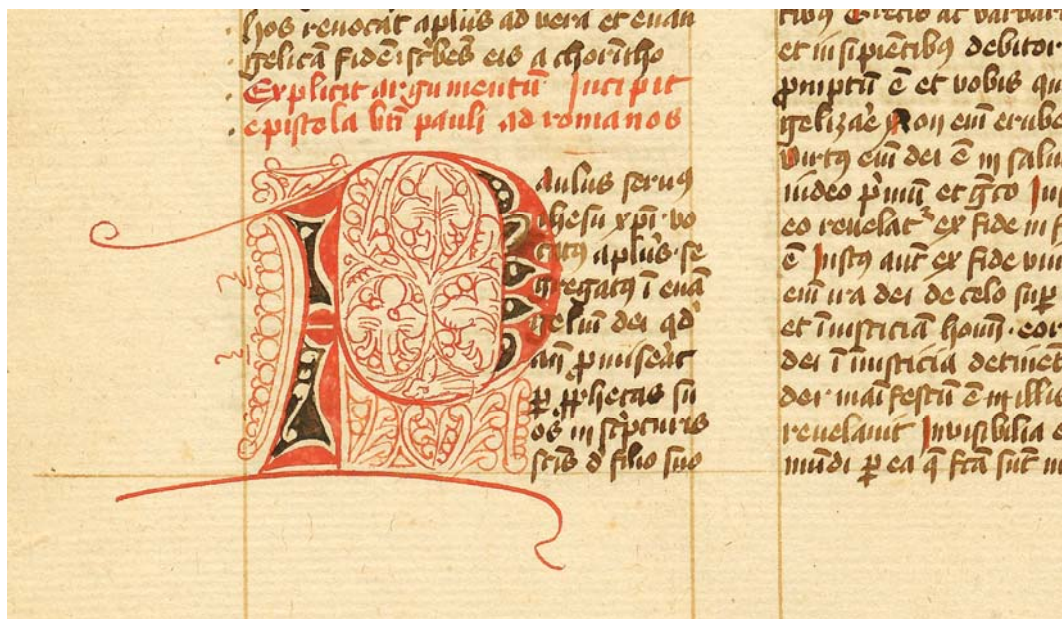 hos reuocat aplūs ad uera et euan
gelicā fidē scͥbēs eis a chorītho
Explicit argumentū Incipit
epistola btī pauli ad romanos
Paulus seruꝯ
ihesu xpī vo
catꝯ aplūs se
gregatꝯ ī euā
geliū dei qd̓
añ ꝓmiserat
ꝑ ꝓphetas su
os in scͥpturis
sctīs d̓ filio suo
tibꝯ Grecis ac barbar
et insipiētibꝯ debitor
ꝓmptū ē et vobis qu
gelizaꝛe Non eī erube
Virtꝯ eī dei ē in salu
iudeo pͥmū et gͥco Iu
eo reuelat᷑ ex fide in f
ē Justꝯ aūt ex fide viu
eī ira dei de celo suꝑ
et īiusticiā hoīm eo
dei ī iniusticia detinē
dei maīfestū ē in illi
reuelauit Inuisibilia e
mūdi ꝑ ea q̄ fcā sūt in